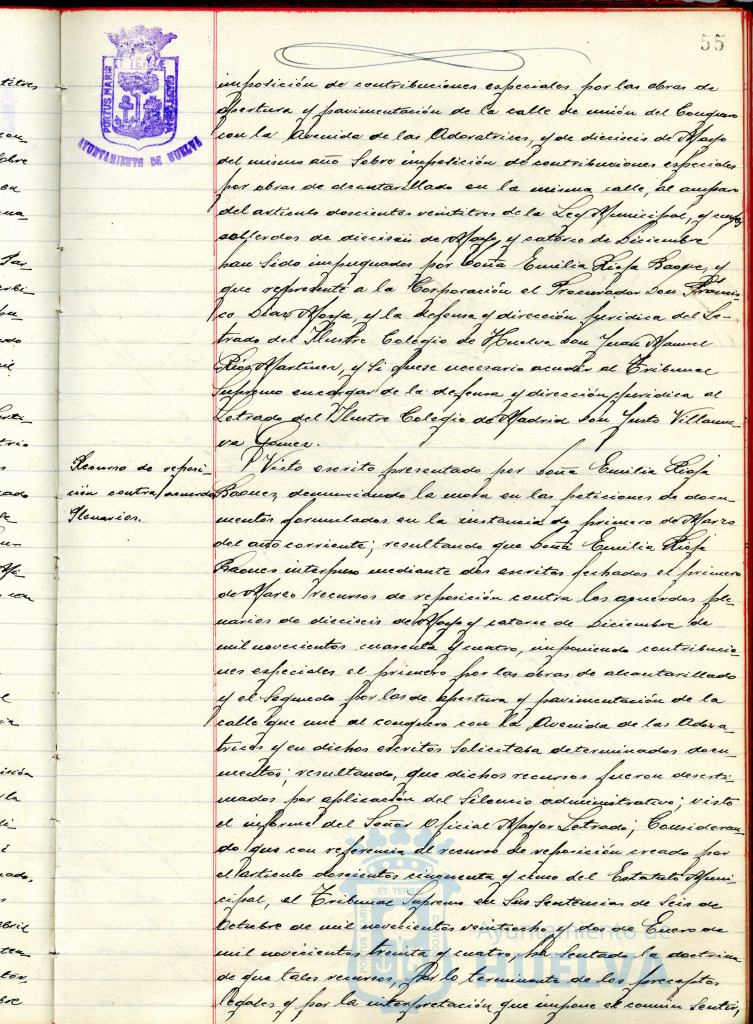 55
PORTUS MARIS ET TERRAE CUSTODIA
AYUNTAMIENTO DE HUELVA
imposición de contribuciones especiales por las obras de
apertura y pavimentación de la calle de unión del Conquero
con la Avenida de las Adoratrices, y de dieciseis de Mayo
del mismo año sobre imposición de contribuciones especiales
por obras de alcantarillado en la misma calle, al amparo
del artículo doscientos veintitres de la Ley Municipal, y cuyos
acuerdos de dieciseis de Mayo y catorce de Diciembre
han sido impugnados por Doña Emilia Rioja Baquez, y
que represente a la Corporación el Procurador Don Francis-
co Diaz Moya, y la defensa y dirección jurídica del Le-
trado del Ilustre Colegio de Huelva Don Juan Manuel
Martinez, y si fuese necesario acudir al Tribunal
Supremo encargar de la defensa y dirección jurídica al
Letrado del Ilustre Colegio de Madrid Don Justo Villanue-
va Gomez.
Recurso de reposi-
ción contra acuerdos
Plenarios.
Visto escrito presentado por Doña Emilia Rioja
denunciando la mora en las peticiones de docu-
mentos formulados en la instancia de primero de Marzo
del año corriente; resultando que Doña Emilia Rioja
interpuso mediante dos escritos fechados el primero
de Marzo recursos de reposición contra los acuerdos ple-
narios de dieciseis de Mayo y catorce de Diciembre de
mil novecientos cuarenta y cuatro, imponiendo contribucio-
nes especiales el primero por las obras de alcantarillado
y el segundo por las de apertura y pavimentación de la
calle que une al conquero con la Avenida de las Adora-
trices y en dichos escritos solicitaba determinados docu-
mentos; resultando, que dichos recursos fueron desesti-
mados por aplicación del silencio administrativo; visto
el informe del Señor Oficial Mayor Letrado; Consideran-
do que con referencia al recurso de reposición creado por
el artículo doscientos cincuenta y cinco del Estatuto Muni-
cipal, el Tribunal Supremo en sus Sentencias de seis de
Octubre de mil novecientos veintiocho y dos de Enero de
mil novecientos treinta y cuatro, ha sentado la doctrina
de que tales recursos, por lo terminante de los preceptos
legales y por la interpretación que impone el común sentir,
Ayuntamiento de
HUELVA